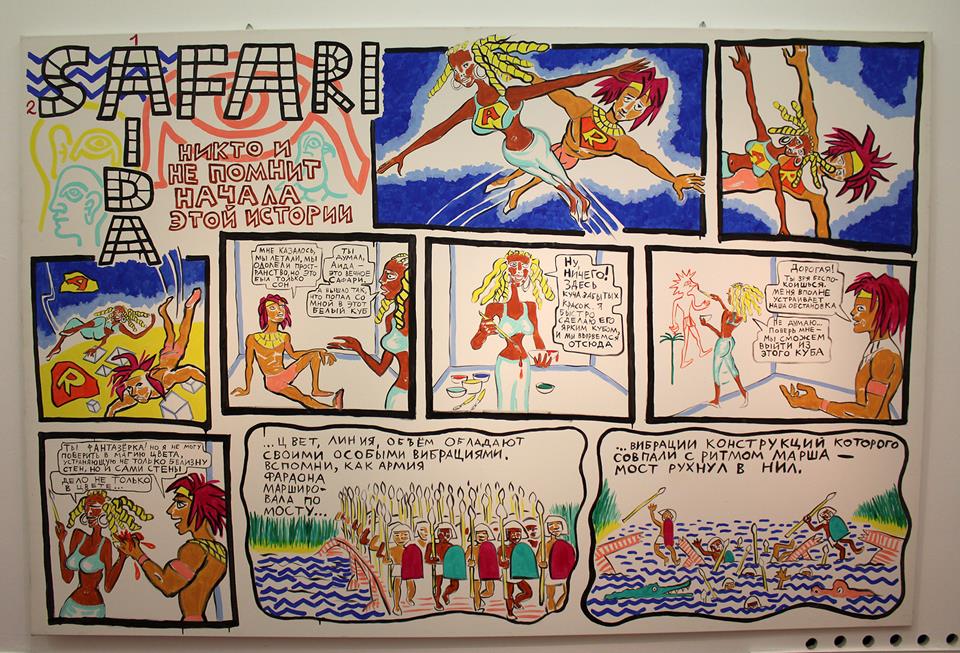 1
SAFARI
2
I
D
A
НИКТО И
НЕ ПОМНИТ
НАЧАЛА
ЭТОЙ ИСТОРИИ
A
R
A
R
A
R
МНЕ КАЗАЛОСЬ,
МЫ ЛЕТАЛИ, МЫ
ОДОЛЕЛИ ПРОСТ-
РАНСТВО, НО ЭТО
БЫЛ ТОЛЬКО
СОН
ТЫ
ДУМАЛ,
АИДА —
ЭТО ВЕЧНОЕ
САФАРИ,
А ВЫШЛО ТАК,
ЧТО ПОПАЛ СО
МНОЙ В ЭТОТ
БЕЛЫЙ КУБ
НУ,
НИЧЕГО!
ЗДЕСЬ
КУЧА ЗАБЫТЫХ
КРАСОК. Я
БЫСТРО
СДЕЛАЮ ЕГО
ЯРКИМ КУБОМ,
И МЫ ВЫРВЕМСЯ
ОТСЮДА
ДОРОГАЯ!
ТЫ ЗРЯ БЕСПО-
КОИШЬСЯ.
МЕНЯ ВПОЛНЕ
УСТРАИВАЕТ
НАША ОБСТАНОВКА
НЕ ДУМАЮ...
ПОВЕРЬ МНЕ —
МЫ СМОЖЕМ
ВЫЙТИ ИЗ
ЭТОГО КУБА
ТЫ ФАНТАЗЁРКА! НО Я НЕ МОГУ
ПОВЕРИТЬ В МАГИЮ ЦВЕТА,
УСТРАНЯЮЩУЮ НЕ ТОЛЬКО БЕЛИЗНУ
СТЕН, НО И САМИ СТЕНЫ
ДЕЛО НЕ ТОЛЬКО
В ЦВЕТЕ...
...ЦВЕТ, ЛИНИЯ, ОБЪЁМ ОБЛАДАЮТ
СВОИМИ ОСОБЫМИ ВИБРАЦИЯМИ.
ВСПОМНИ, КАК АРМИЯ
ФАРАОНА
МАРШИРО-
ВАЛА ПО
МОСТУ...
...ВИБРАЦИИ КОНСТРУКЦИЙ КОТОРОГО
СОВПАЛИ С РИТМОМ МАРША —
МОСТ РУХНУЛ В НИЛ.